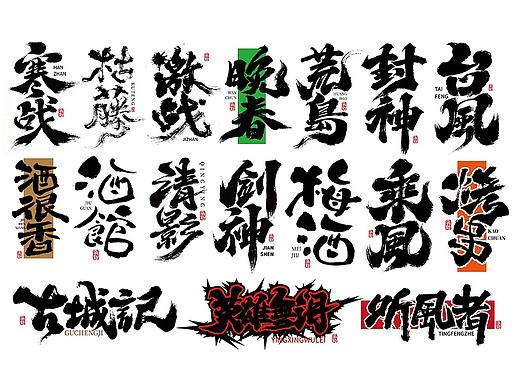 寒战
HAN
ZHAN
枯藤
KUTENG
激战
JIZHAN
晚春
WAN
CHUN
荒島
HUANG
DAO
封神
台風
TAI
FENG
酒很香
酒館
JIU
GUAN
清影
QINGYING
劍神
JIAN
SHEN
梅酒
MEI
JIU
乘風
烤串
KAO
CHUAN
古城記
GUCHENGJI
英雄無泪
YINGXINGWULEI
听風者
TINGFENGZHE